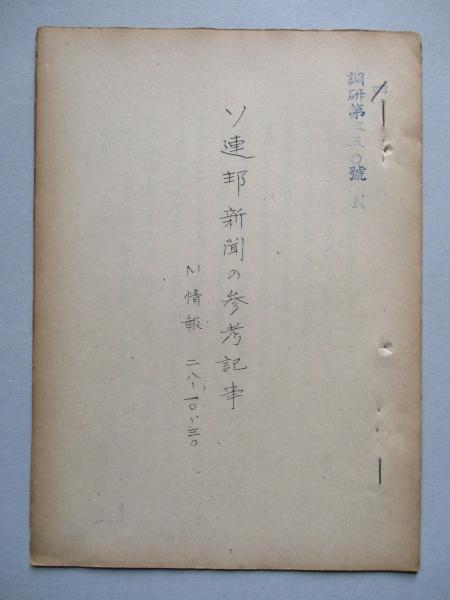 調研第三五〇號 N
ソ連邦新聞の参考記事
N情報 二八、一〇、三〇